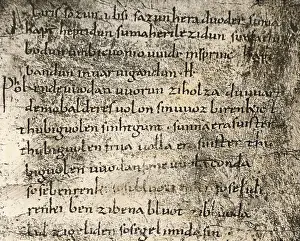 Eiris sazun idisi sazun hera duoder suma
hapt heptidun sumaherilezidun sumaclu
bodun umbicuonio uuidi insprinc hapt
bandun inuar uigandun. H.
Phol endeuuodan uuorun ziholza du uuart
demobalderes uolon sinuuoz birenkict
thubiguolen sinhtgunt. sunnaerasuister
thubiguolen friia uolla erasuister thu
biguolen uuodan sohe uuolaconda
sosebenrenki sose bluotrenki soselidi
renki ben zibena bluot zibluoda
lid zigeliden sosegelimida sin